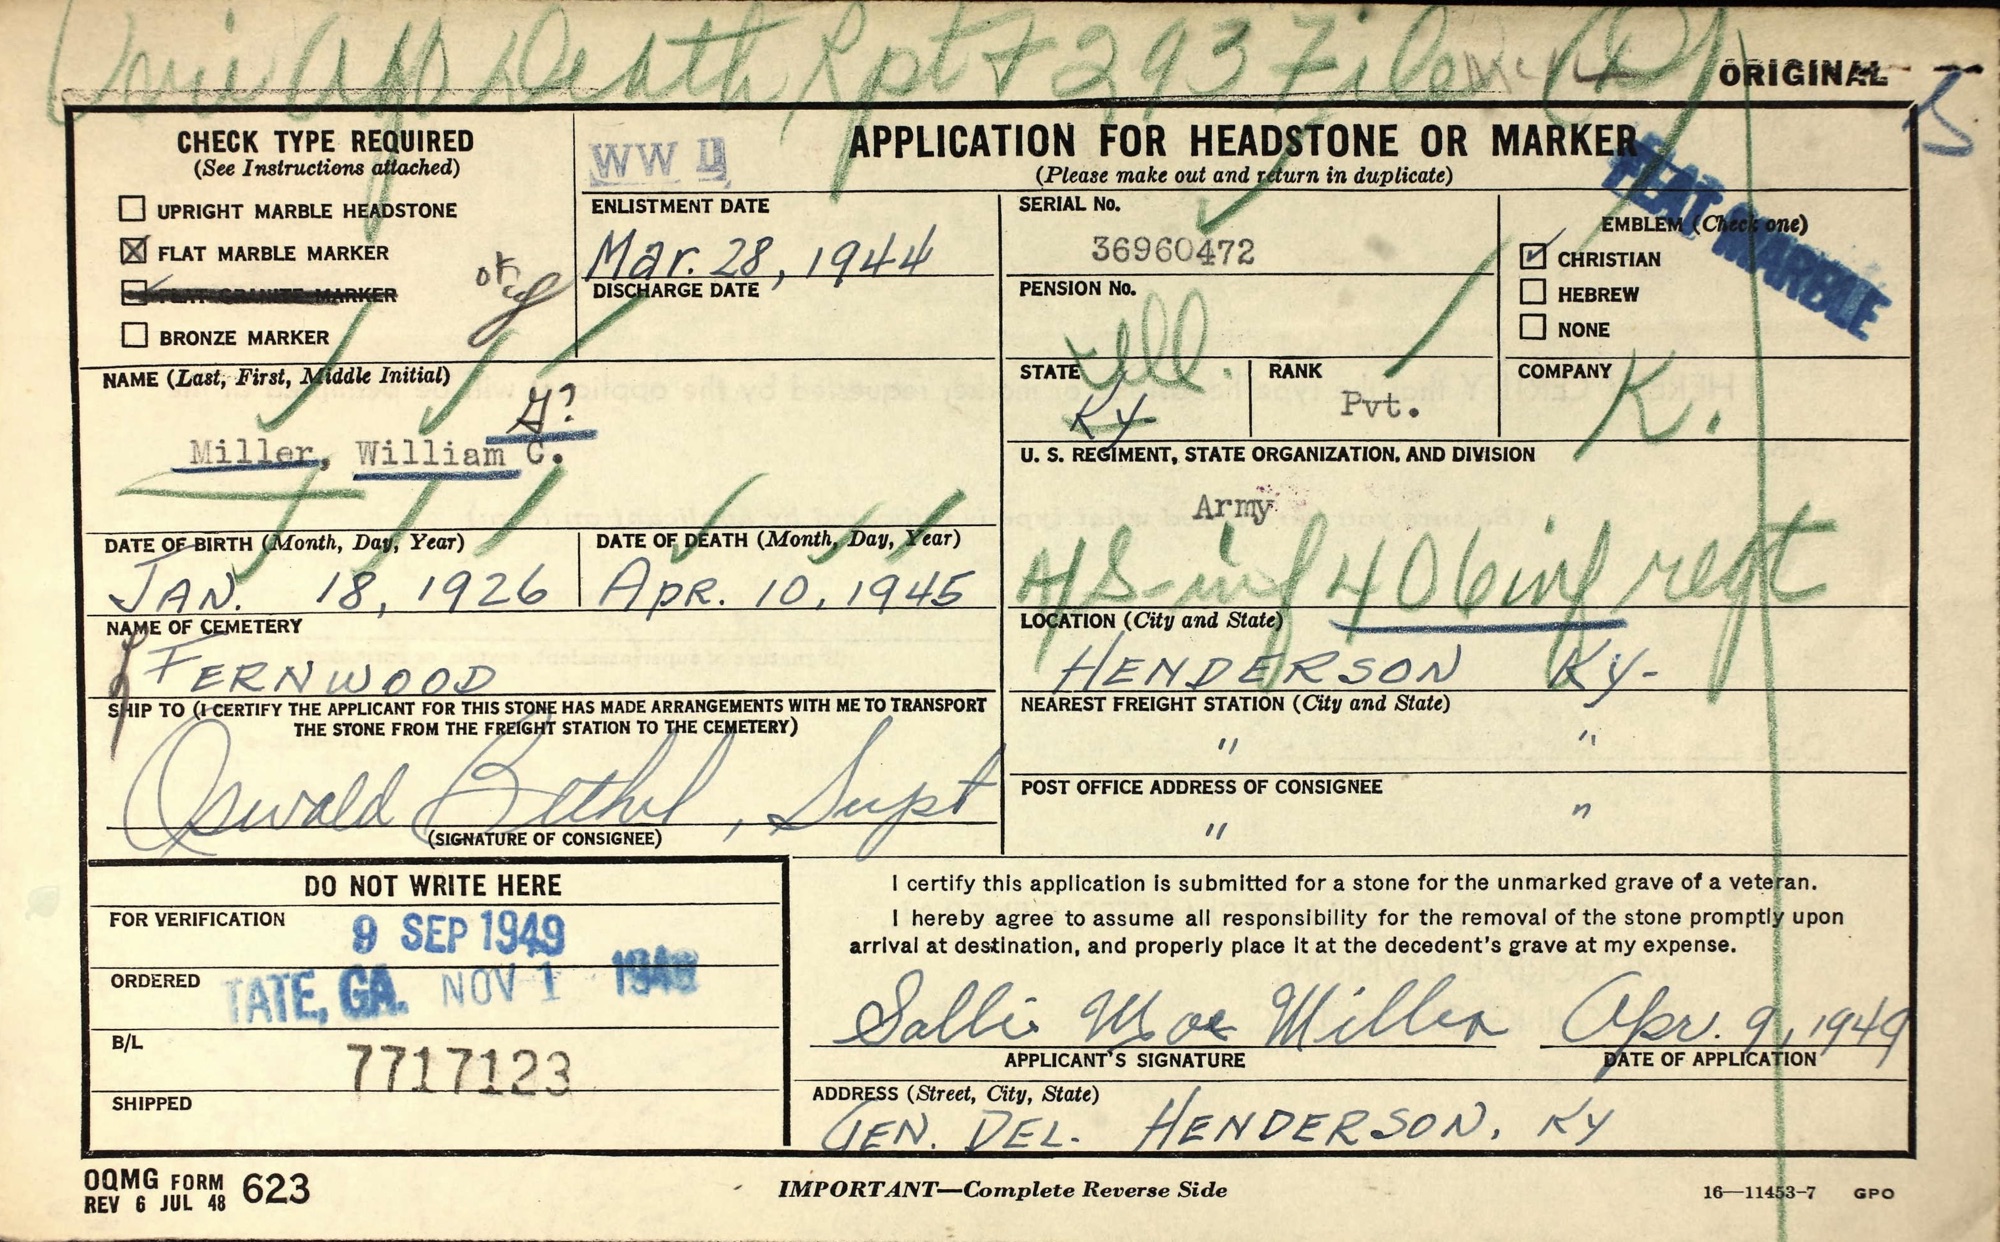 Veri Ago Death Rpt + 293 File
ORIGINAL
CHECK TYPE REQUIRED
(See Instructions attached)
UPRIGHT MARBLE HEADSTONE
FLAT MARBLE MARKER
FLAT GRANITE MARKER
BRONZE MARKER
ok
WW II
APPLICATION FOR HEADSTONE OR MARKER
(Please make out and return in duplicate)
FLAT MARBLE
ENLISTMENT DATE
Mar. 28, 1944
DISCHARGE DATE
SERIAL No.
36960472
PENSION No.
EMBLEM (Check one)
CHRISTIAN
HEBREW
NONE
NAME (Last, First, Middle Initial)
G?
Miller, William C.
STATE
Ill.
Ky
RANK
Pvt.
COMPANY
K.
U. S. REGIMENT, STATE ORGANIZATION, AND DIVISION
Army
A/S-inf 406 inf regt
DATE OF BIRTH (Month, Day, Year)
JAN. 18, 1926
DATE OF DEATH (Month, Day, Year)
APR. 10, 1945
NAME OF CEMETERY
FERNWOOD
LOCATION (City and State)
HENDERSON KY-
SHIP TO (I CERTIFY THE APPLICANT FOR THIS STONE HAS MADE ARRANGEMENTS WITH ME TO TRANSPORT
THE STONE FROM THE FREIGHT STATION TO THE CEMETERY)
Oswald Bethel, Supt
(SIGNATURE OF CONSIGNEE)
NEAREST FREIGHT STATION (City and State)
" "
POST OFFICE ADDRESS OF CONSIGNEE
" "
DO NOT WRITE HERE
FOR VERIFICATION
9 SEP 1949
ORDERED
TATE, GA. NOV 1 1949
B/L
7717123
SHIPPED
I certify this application is submitted for a stone for the unmarked grave of a veteran.
I hereby agree to assume all responsibility for the removal of the stone promptly upon
arrival at destination, and properly place it at the decedent's grave at my expense.
Sallie Mae Miller Apr. 9, 1949
APPLICANT'S SIGNATURE
DATE OF APPLICATION
ADDRESS (Street, City, State)
GEN. DEL. HENDERSON, KY
OQMG FORM 623
REV 6 JUL 48
IMPORTANT—Complete Reverse Side
16—11453-7 GPO